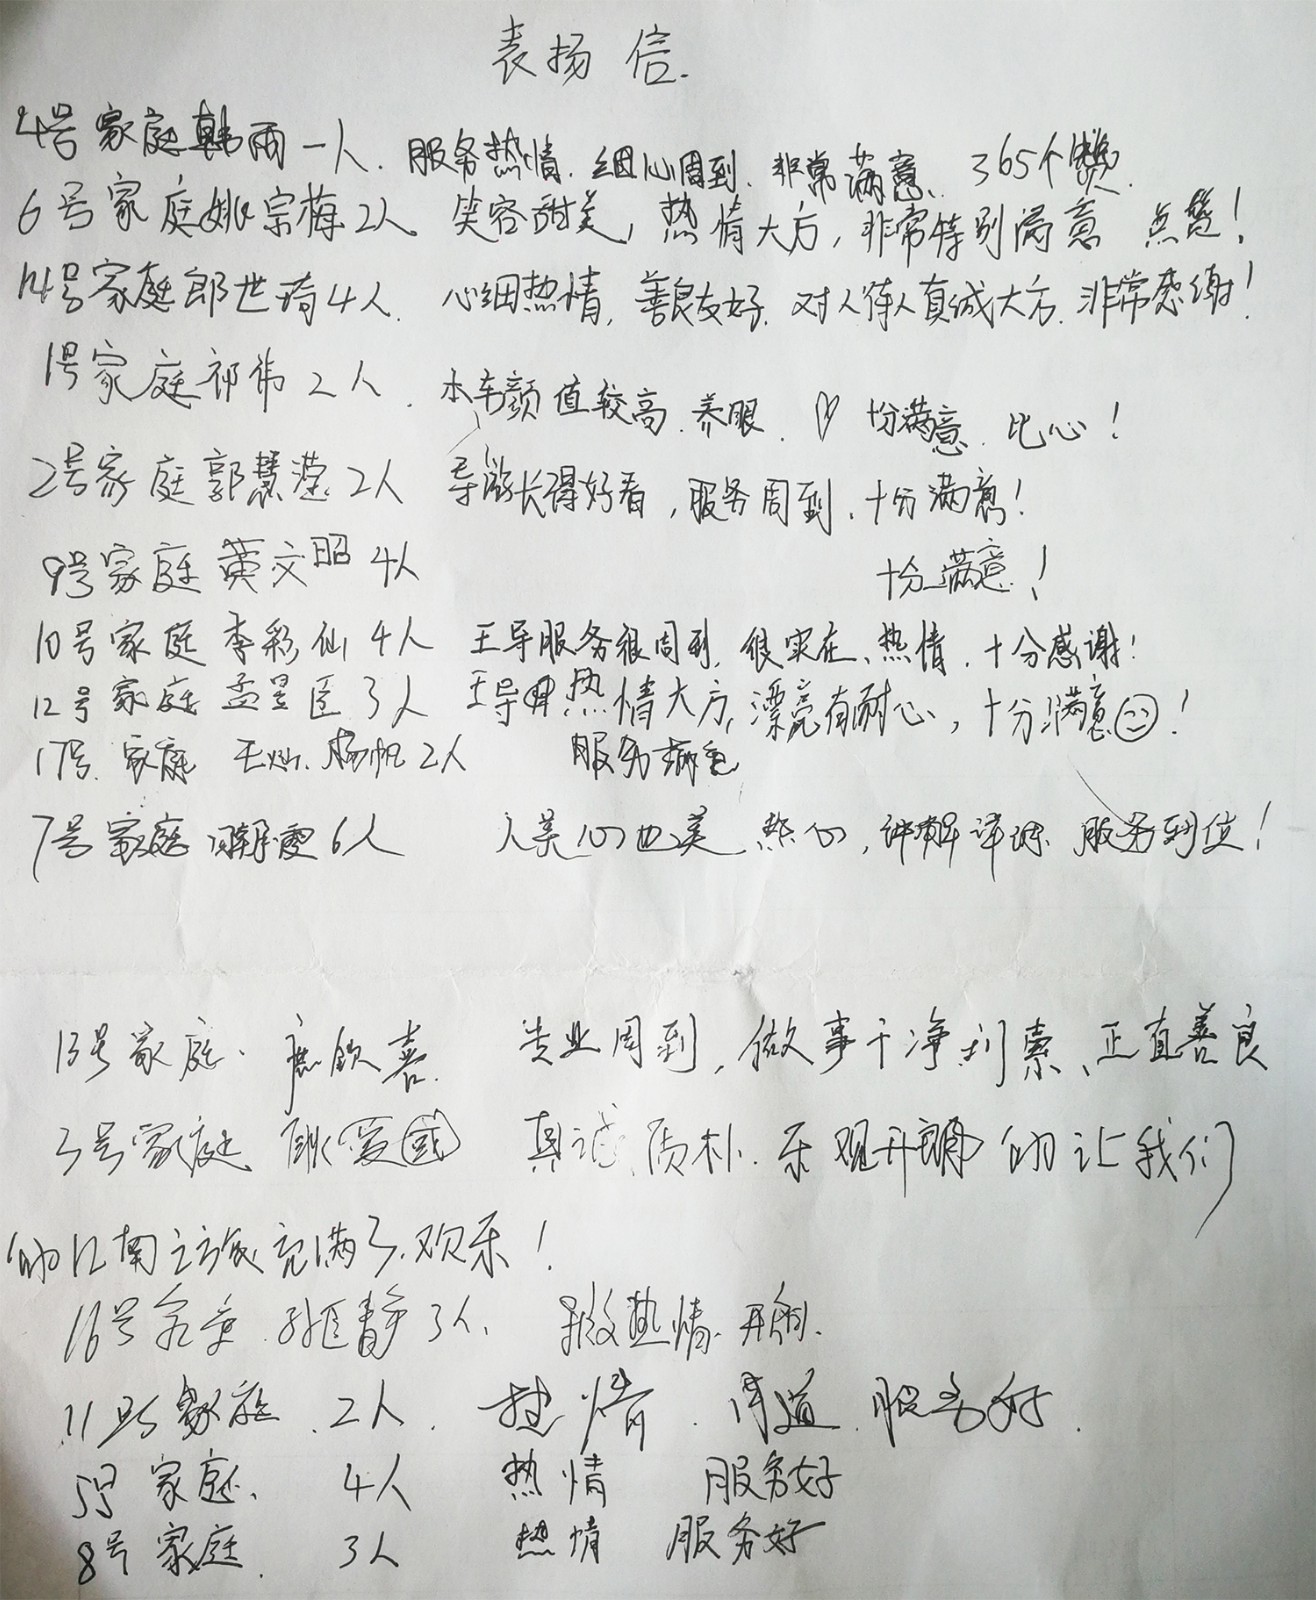 表扬信.
4号家庭韩雨一人. 服务热情.细心周到.非常满意. 365个赞.
6号家庭姚宗梅2人 笑容甜美,热情大方,非常特别满意 点赞!
14号家庭郎世琦4人. 心细热情,善良友好.对人待人真诚大方.非常感谢!
1号家庭祁伟2人. 本车颜值较高.养眼.♡十分满意.比心!
2号家庭郭慧滢2人 导游长得好看,服务周到.十分满意!
9号家庭黄文昭4人 十分满意!
10号家庭李彩仙4人 王导服务很周到,很实在、热情.十分感谢!
12号家庭孟昱臣3人 王导热情大方,漂亮有耐心,十分满意!
17号.家庭 王灿.杨帆2人 服务
7号家庭 6人 人美心也美.热心,讲解详. 服务到位!
13号家庭.钦喜. 专业周到,做事干净利索、正直善良
3号家庭 爱国 真诚.质朴.乐观开朗的让我们
的江南之旅充满了欢乐!
16号家庭.静3人. 热情.开朗.
11号家庭.2人. 热情.周道.服务好.
5号家庭. 4人 热情 服务好
8号家庭. 3人 热情 服务好